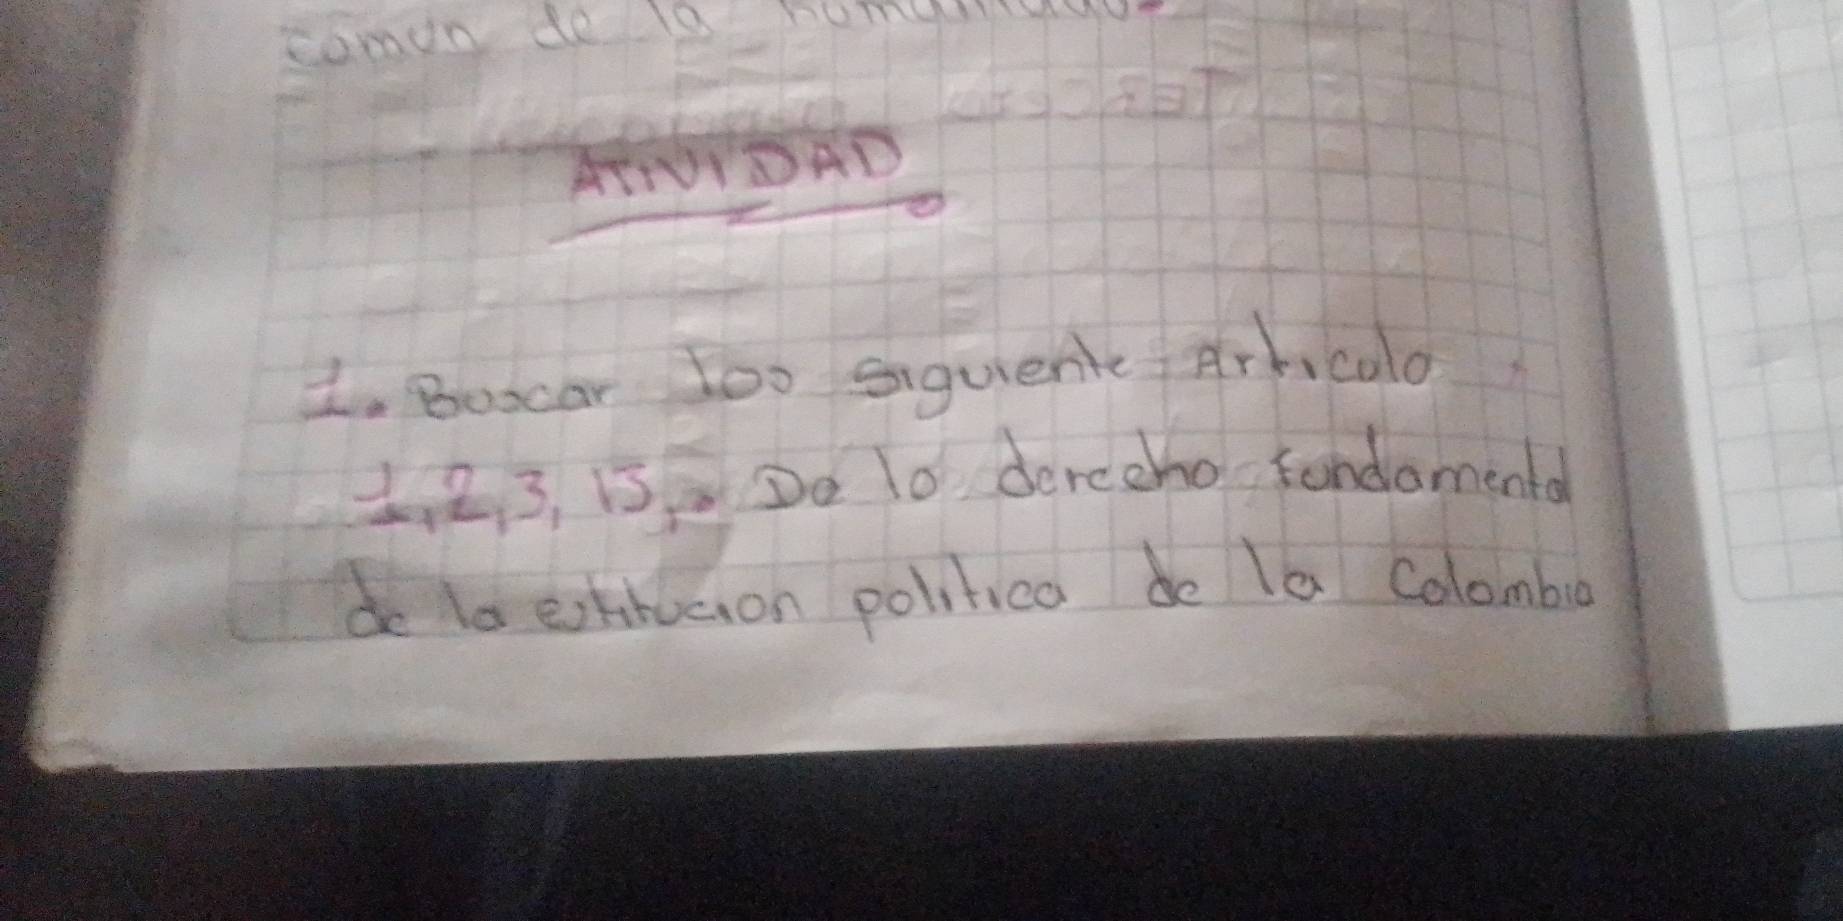 comun de la humanidad.
ATIVIDAD
1. Buscar los siguiente Articulo
1, 2, 3, 15,. De lo derecho fundamental
de la estitucion politica de la Colombia